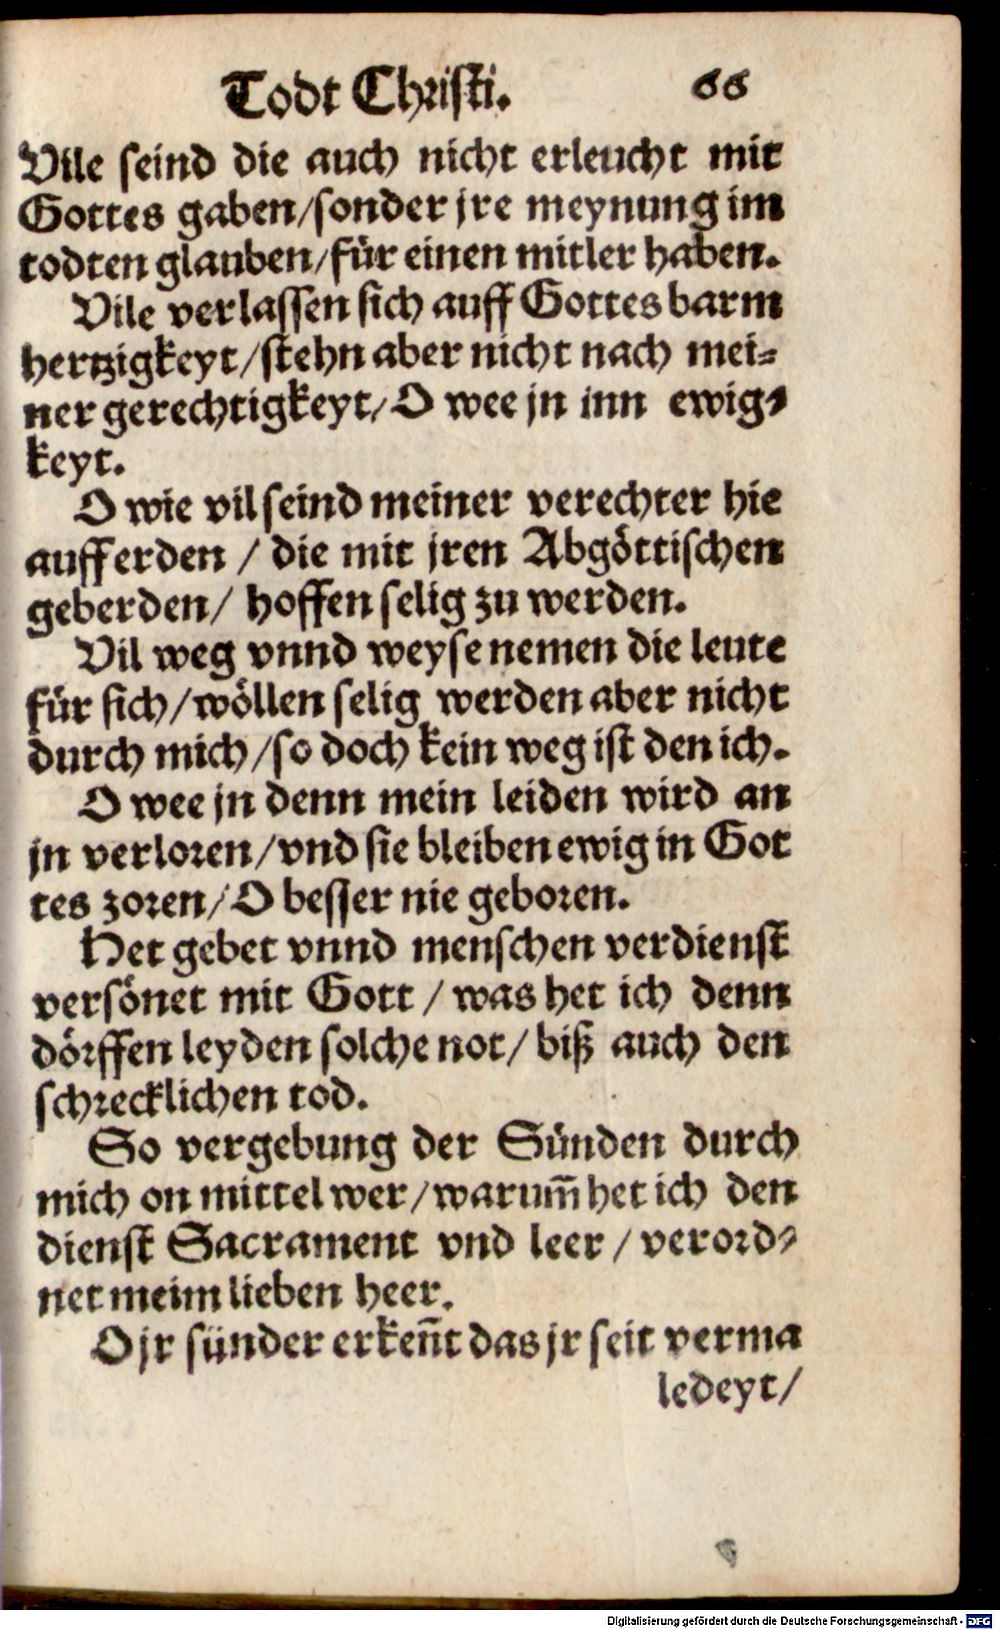 Todt Christi. 66
Vile seind die auch nicht erleucht mit
Gottes gaben/sonder jre meynung im
todten glauben/für einen mitler haben.
Vile verlassen sich auff Gottes barm
hertzigkeyt/stehn aber nicht nach mei-
ner gerechtigkeyt/O wee jn inn ewig-
keyt.
O wie vil seind meiner verechter hie
auff erden / die mit jren Abgöttischen
geberden/ hoffen selig zu werden.
Vil weg vnnd weyse nemen die leute
für sich/wöllen selig werden aber nicht
durch mich/so doch kein weg ist den ich.
O wee jn denn mein leiden wird an
jn verloren/vnd sie bleiben ewig in Got
tes zoren/O besser nie geboren.
Het gebet vnnd menschen verdienst
versönet mit Gott / was het ich denn
dörffen leyden solche not/ biß auch den
schrecklichen tod.
So vergebung der Sünden durch
mich on mittel wer/warum̃ het ich den
dienst Sacrament vnd leer / verord-
net meim lieben heer.
O jr sünder erkeñt das jr seit verma
ledeyt/
Digitalisierung gefördert durch die Deutsche Forschungsgemeinschaft - DFG